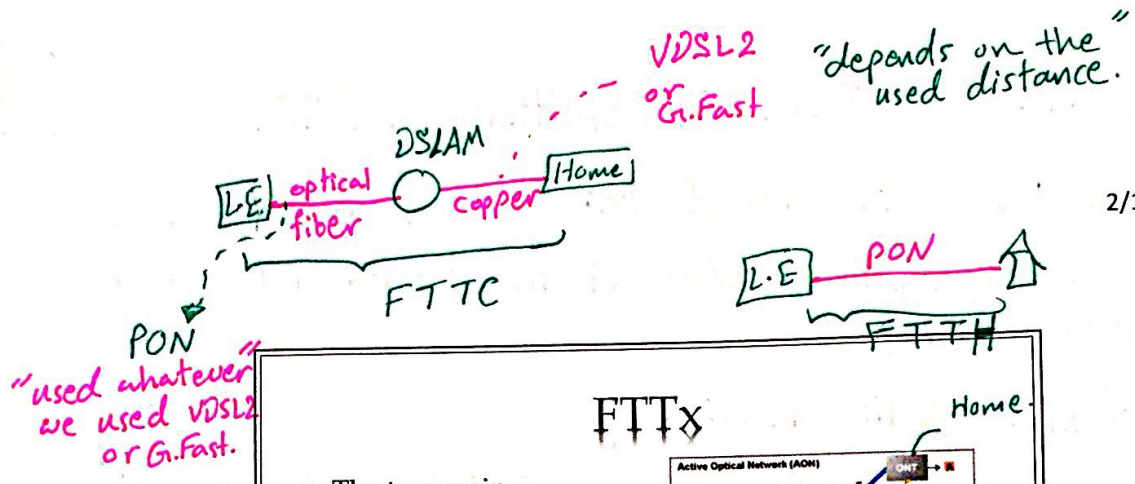 VDSL2
or
G.Fast
"depends on the"
used distance.
DSLAM
L.E.
optical
fiber
copper
Home
FTTC
2/
L.E
PON
FTTH
PON
"used whatever"
we used VDSL2
or G.Fast.
FTTx
Home
Active Optical Network (AON)
ONT